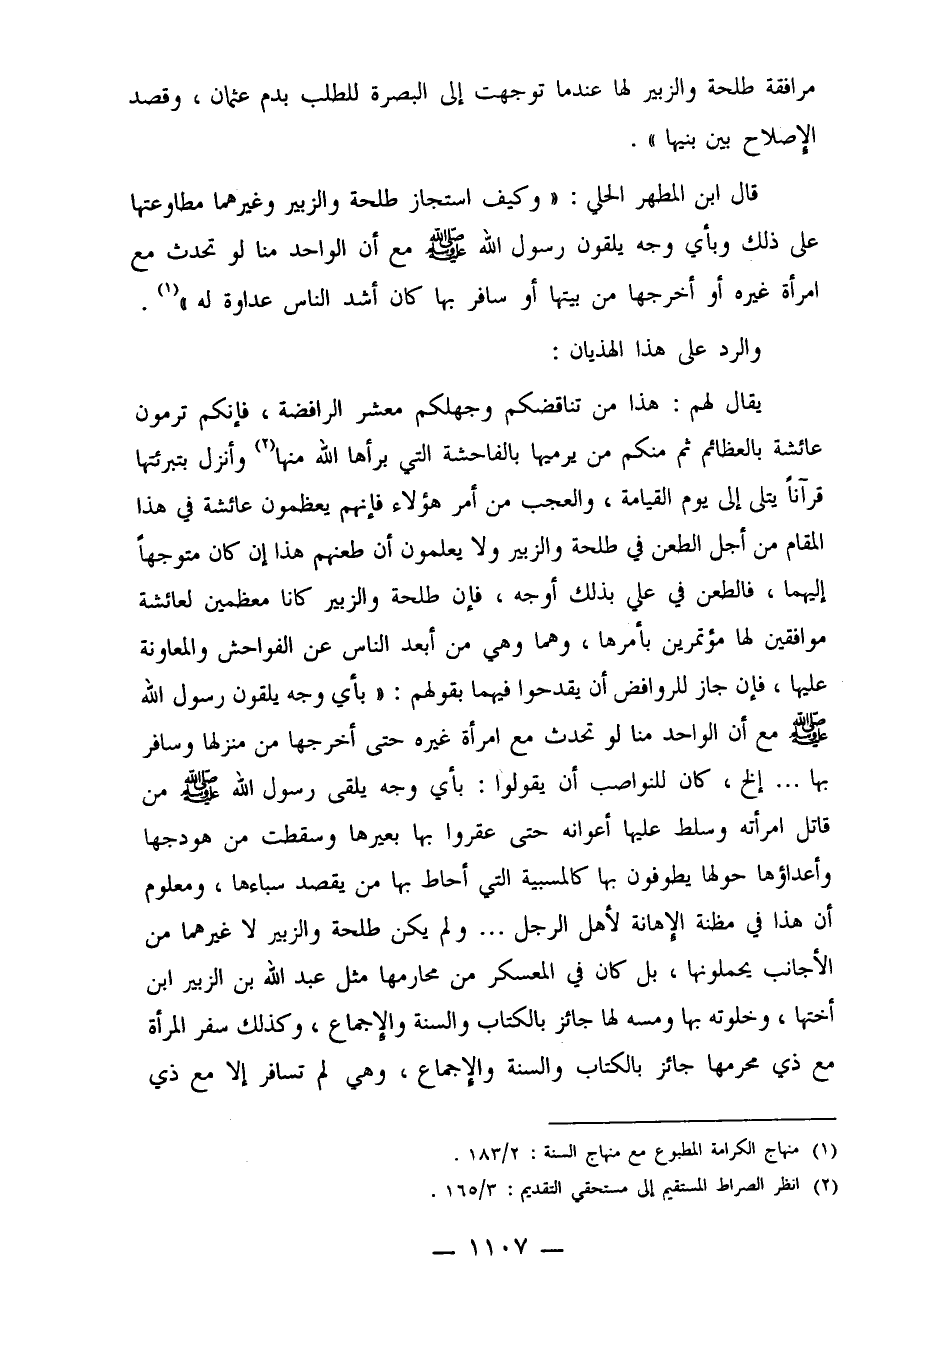 مرافقة طلحة والزبير لها عندما توجهت إلى البصرة للطلب بدم عثمان ، وقصد
الإصلاح بين بنيها » .
قال ابن المطهر الحلي : « وكيف استجاز طلحة والزبير وغيرهما مطاوعتها
على ذلك وبأي وجه يلقون رسول الله ﷺ مع أن الواحد منا لو تحدث مع
امرأة غيره أو أخرجها من بيتها أو سافر بها كان أشد الناس عداوة له »(١) .
والرد على هذا الهذيان :
يقال لهم : هذا من تناقضكم وجهلكم معشر الرافضة ، فإنكم ترمون
عائشة بالعظائم ثم منكم من يرميها بالفاحشة التي برأها الله منها(٢) وأنزل بتبرئتها
قرآناً يتلى إلى يوم القيامة ، والعجب من أمر هؤلاء فإنهم يعظمون عائشة في هذا
المقام من أجل الطعن في طلحة والزبير ولا يعلمون أن طعنهم هذا إن كان متوجهاً
إليهما ، فالطعن في علي بذلك أوجه ، فإن طلحة والزبير كانا معظمين لعائشة
موافقين لها مؤتمرين بأمرها ، وهما وهي من أبعد الناس عن الفواحش والمعاونة
عليها ، فإن جاز للروافض أن يقدحوا فيهما بقولهم : « بأي وجه يلقون رسول الله
ﷺ مع أن الواحد منا لو تحدث مع امرأة غيره حتى أخرجها من منزلها وسافر
بها ... إلخ ، كان للنواصب أن يقولوا : بأي وجه يلقى رسول الله ﷺ من
قاتل امرأته وسلط عليها أعوانه حتى عقروا بها بعيرها وسقطت من هودجها
وأعداؤها حولها يطوفون بها كالمسبية التي أحاط بها من يقصد سباءها ، ومعلوم
أن هذا في مظنة الإهانة لأهل الرجل ... ولم يكن طلحة والزبير لا غيرهما من
الأجانب يحملونها ، بل كان في المعسكر من محارمها مثل عبد الله بن الزبير ابن
أختها ، وخلوته بها ومسه لها جائز بالكتاب والسنة والإجماع ، وكذلك سفر المرأة
مع ذي محرمها جائز بالكتاب والسنة والإجماع ، وهي لم تسافر إلا مع ذي
(١) منهاج الكرامة المطبوع مع منهاج السنة : ١٨٣/٢ .
(٢) انظر الصراط المستقيم إلى مستحقي التقديم : ١٦٥/٣ .
— ١١٠٧ —